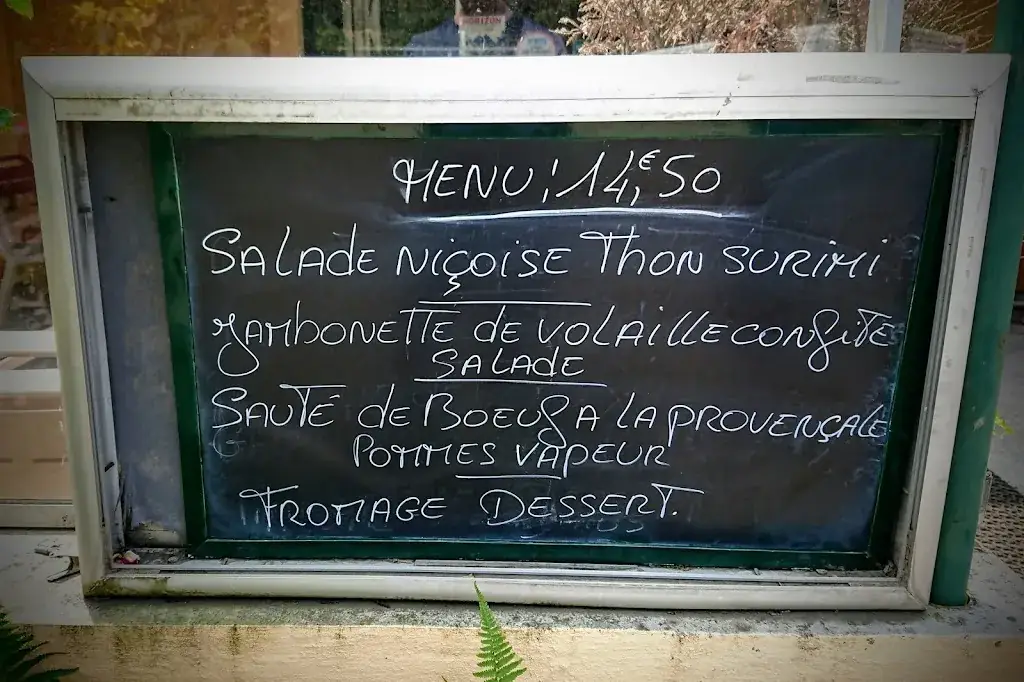 HORIZON
MENU : 14,€50
SALADE NIÇOISE THON SURIMI
JAMBONETTE de VOLAILLE CONFITE
SALADE
SAUTÉ de BOEUF A LA PROVENÇALE
POMMES VAPEUR
FROMAGE DESSERT.